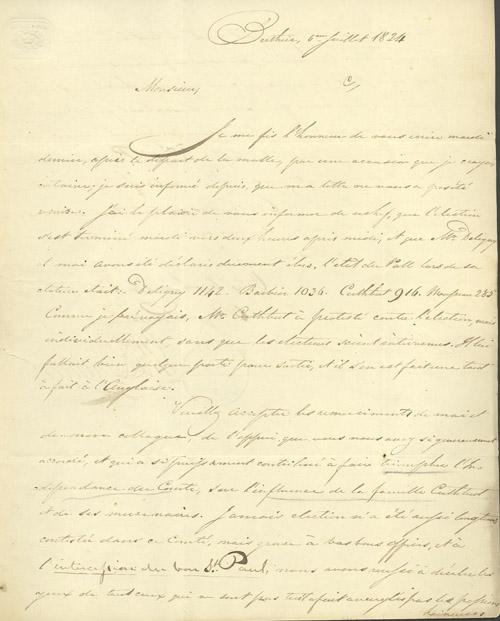 Berthier, 6me Juillet 1824
Monsieur,
Je me fis l'honneur de vous écrire mardi
dernier, après le départ de la malle, par une occasion que je croyais
certaine; je suis informé depuis, que ma lettre ne vous a pas été
remise. J'ai le plaisir de vous informer de nouveau, que l'élection
s'est terminé mardi vers deux heures après midi, et que Mr. Deligny
& moi avons été déclarés duement élus. L'état du Poll lors de sa
cloture était: Deligny 1142. Barbier 1036. Cuthbert 916. 285
Comme je prévoyais, Mr. Cuthbert a protesté contre l'élection, mais
individuellement, sans que les électeurs soient intervenus. Il lui
fallait bien quelque porte pour sortir, et il s'en est fait une tout
à fait à l'Anglaise.
Veuillez accepter les remerciments de moi et
de mon collegue, de l'appui que vous nous avez si généreusement
accordé, et qui a si puissament contribué à faire triompher l'In-
dépendance du Comté, sur l'influence de la famille Cuthbert
et de ses mercenaires. Jamais élection n'a été aussi longtems
contestée dans ce Comté, mais grace à vos bons offices, et à
l'intercession du bon St. Paul, nous avons réussi à déciller les
yeux de tous ceux qui ne sont pas tout à fait aveuglés par les